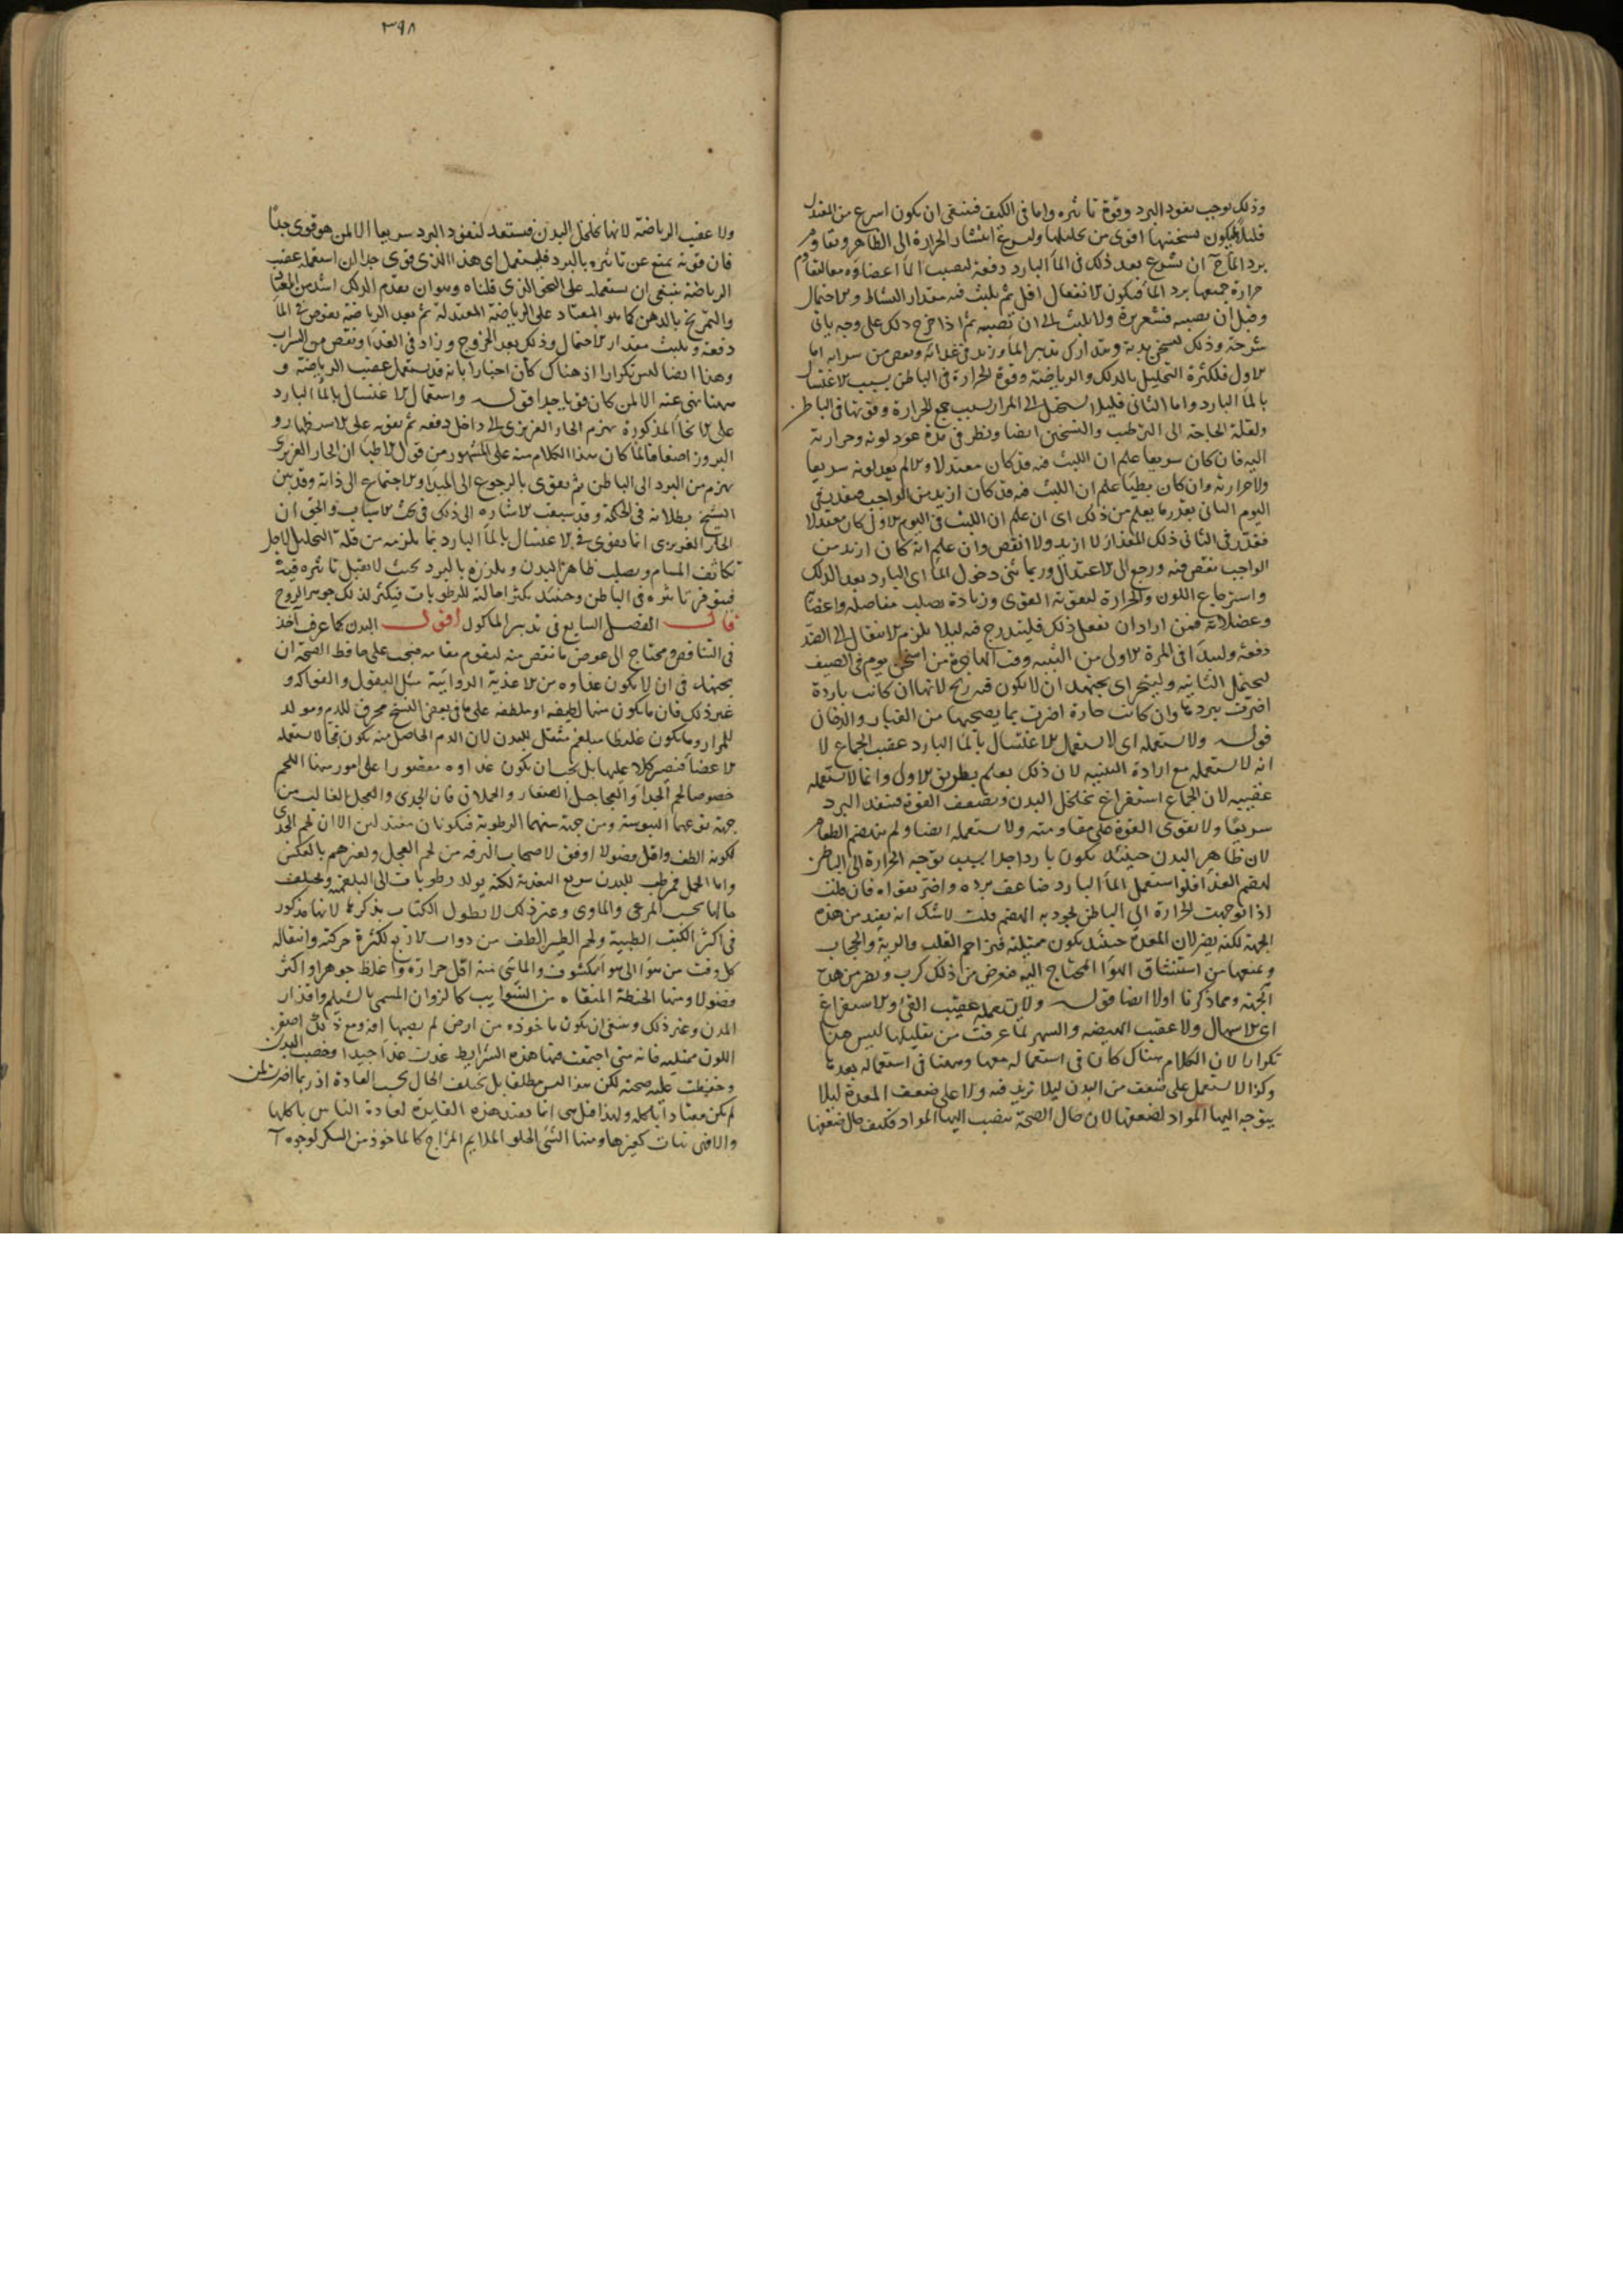 وذلك يوجب نفوذ البرد وقوة تاثيره واما في الكيف فينبغي ان يكون اسرع من المعتدل
قليلا ليكون تسخينها اقوى من تحليلها وليسرع انتشار الحرارة الى الظاهر ويقاوم
برد الماء ان يشرع بعد ذلك في الماء البارد دفعة ليصيب الماء اعضاؤه معا ليقاوم
حرارة جميعها برد الماء فيكون الانفعال اقل ثم يلبث فيه مقدار النشاط والاحتمال
وقبل ان يصيبه قشعريرة ولا يلبث الى ان تصيبه ثم اذا خرج دلك على وجه ياتي
شرحه وذلك ليسخن بدنه ويتدارك تدبير الماء وزيد في غذائه ونقص من شرابه اما
الاول فلكثرة التحليل بالدلك والرياضة وقوة الحرارة في الباطن بسبب الاغتسال
بالماء البارد واما الثاني فليلا يستحيل الى المرار بسبب جمع الحرارة وقوتها في الباطن
ولقلة الحاجة الى الترطيب والتسخين ايضا ونظر في مدة عود لونه وحرارته
اليه فان كان سريعا علم ان اللبث فيه قد كان معتدلا والا لم يعد لونه سريعا
ولا حرارته وان كان بطيئا علم ان اللبث فيه قد كان ازيد من الواجب فيقدر في
اليوم الثاني بقدر ما يعلم من ذلك اى ان علم ان اللبث في اليوم الاول كان معتدلا
فقدر في الثاني ذلك المقدار لا ازيد ولا انقص وان علم انه كان ازيد من
الواجب نقص منه ورجع الى الاعتدال وربما ثنى دخول الماء اى البارد بعد الدلك
واسترجاع اللون والحرارة ليقوته القوى وزيادة تصلب مفاصله واعضائه
وعضلاته فمن اراد ان يفعل ذلك فليتدرج فيه ليلا يلزم الانتقال الى الضد
دفعة وليبدأ في المرة الاولى من السنة وقت الهاجرة من اسخن يوم في الصيف
ليحتمل الثانية وليتحر اى يجتهد ان لا يكون فيه ريح لانها ان كانت باردة
اضرت ببردها وان كانت حارة اضرت بما يصحبها من الغبار والدخان
قوله ولا يستعمله اى لا يستعمل الاغتسال بالماء البارد عقيب الجماع لا
انه لا يستعمله مع ارادة البنية لان ذلك يعلم بطريق الاول وانما لا يستعمله
عقيبه لان الجماع استفراغ يخلخل البدن ويضعف القوة فينفذ البرد
سريعا ولا يقوى القوة على مقاومته ولا يستعمله ايضا ولم ينهضم الطعام
لان ظاهر البدن حينئذ يكون باردا جدا بسبب توجه الحرارة الى الباطن
لهضم الغذاء فلو استعمل الماء البارد ضاعف برده واضر بقواه فان قلت
اذا توجهت الحرارة الى الباطن تجود به الهضم قلت لا شك انه يفيد من هذه
الجهة لكنه يضر لان المعدة حينئذ يكون ممتلئة فيزاحم القلب والرية والحجاب
ويمنعها من استنشاق الهواء المحتاج اليه فيعرض من ذلك كرب ويضر من هذه
الجهة ومما ذكرنا اولا ايضا قوله ولا يستعمله عقيب القئ والاستفراغ
اى الاسهال ولا عقيب الهيضة والسهر لما عرفت من تعليلها ليس هذا
تكرارا لان الكلام هناك كان في استعماله معها وههنا في استعماله بعدها
وكذا لا يستعمل على ضعف من البدن ليلا تزيد فيه ولا على ضعف المعدة ليلا
يتوجه اليها المواد لضعفها لان حال الصحة ينصب اليها المواد فكيف حال ضعفها
٣٩٨
ولا عقيب الرياضة لانها تخلخل البدن فيستعد لنفوذ البرد سريعا الا لمن هو قوى جدا
فان قوته يمنع عن تاثيره بالبرد فليستعمل اى هذا الذى قوى جدا لان استعمله عقيب
الرياضة ينبغي ان يستعمله على النحو الذى قلناه وهو ان يقدم الدلك اشد من المعتاد
والتمريخ بالدهن كما هو المعتاد على الرياضة المعتدلة ثم بعد الرياضة يغوص في الماء
دفعة ويلبث مقدار الاحتمال وذلك بعد الخروج وزاد في الغذاء ونقص من الشراب
وهذا ايضا ليس تكرارا اذ هناك كان اخبارا بانه قد يستعمل عقيب الرياضة و
ههنا نهى عنه الا لمن كان قويا جدا قوله واستعمال الاغتسال بالماء البارد
على الانحاء المذكورة يهزم الحار الغريزى الى داخل دفعة ثم يقويه على الاستظهار و
البروز اضعافا لما كان هذا الكلام منه على المشهور من قول الاطباء ان الحار الغريزى
يهزم من البرد الى الباطن ثم يقوى بالرجوع الى المبدأ والاجتماع الى ذاته وقد بين
الشيخ بطلانه في الحكمة وقد سبقت الاشارة الى ذلك في بحث الاسباب والحق ان
الحار الغريزى انما يقوى في الاغتسال بالماء البارد بما يلزمه من قلة التحليل لاجل
تكاثف المسام ويصلب ظاهر البدن ويلززه بالبرد بحيث لا يقبل تاثيره فيه
فيتوفر تاثيره في الباطن وحينئذ يكثر احالته للرطوبات فيكثر لذلك جوهر الروح
قال الفصل السابع في تدبير الماكول اقول البدن كما عرف آخذ
في التناقص ومحتاج الى عوض ما نقص منه ليقوم مقامه فيجب على حافظ الصحة ان
يجتهد في ان لا يكون غذاوه من الاغذية الدوائية مثل البقول والفواكه و
غير ذلك فان ما يكون منها لطيفه او ملطفه على ما في بعض النسخ محرق للدم ومولد
للمرار وما يكون غليظا مبلغم مثقل للبدن لان الدم الحاصل منه يكون فجا لا يستعمله
الاعضاء فتصير كلا عليها بل يجب ان يكون غذاوه مقصورا على امور منها اللحم
خصوصا لحم الجداء والعجاجيل الصغار والحملان فان الجدى والعجل الغالب من
جهة نوعهما اليبوسة ومن جهة سنهما الرطوبة فيكونان معتدلين الا ان لحم الجدى
لكونه الطف واقل فضولا اوفق لاصحاب الترفه من لحم العجل ولغيرهم بالعكس
واما الحمل فمرطب للبدن سريع التغذية لكنه يولد رطوبات الى البلغمية ويختلف
حالها بحسب المرعى والماوى وغير ذلك لا يطول الكتاب بذكرها لانها مذكور
في اكثر الكتب الطبية ولحم الطير الطف من دوات الاربع لكثرة حركته وانتقاله
كل وقت من هواء الى هواء مكشوف والماشي منه اقل حرارة واغلظ جوهرا واكثر
فضولا ومنها الحنطة المنقاه من الشوايب كالزوان المسمى بالشيلم واقذار
المدن وغير ذلك وينبغي ان يكون ماخوذه من ارض لم يصبها افة ومع ذلك اصفر
اللون ممتليه فانه متى اجتمعت فيها هذه الشرايط غذت غذاء جيدا وخصب البدن
وحفظت عليه صحته لكن هذا ليس مطلقا بل يختلف الحال بحسب العادة اذ ربما اضرت لمن
لم يكن معتادا باكله ولهذا قيل هى انما يفيد هذه الفايدة لعادة الناس باكلها
والا فهي نبات كغيرها ومنها الشئ الحلو الملايم المزاج كالماخوذ من السكر لوجوه آ